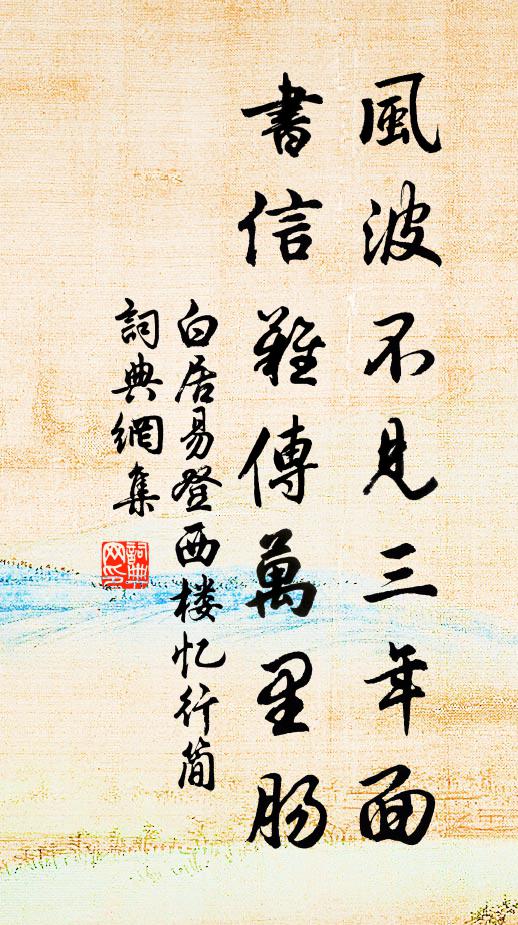 風波不見三年面
書信難傳萬里腸
白居易登西楼忆行簡
詞典網集
詞典网印